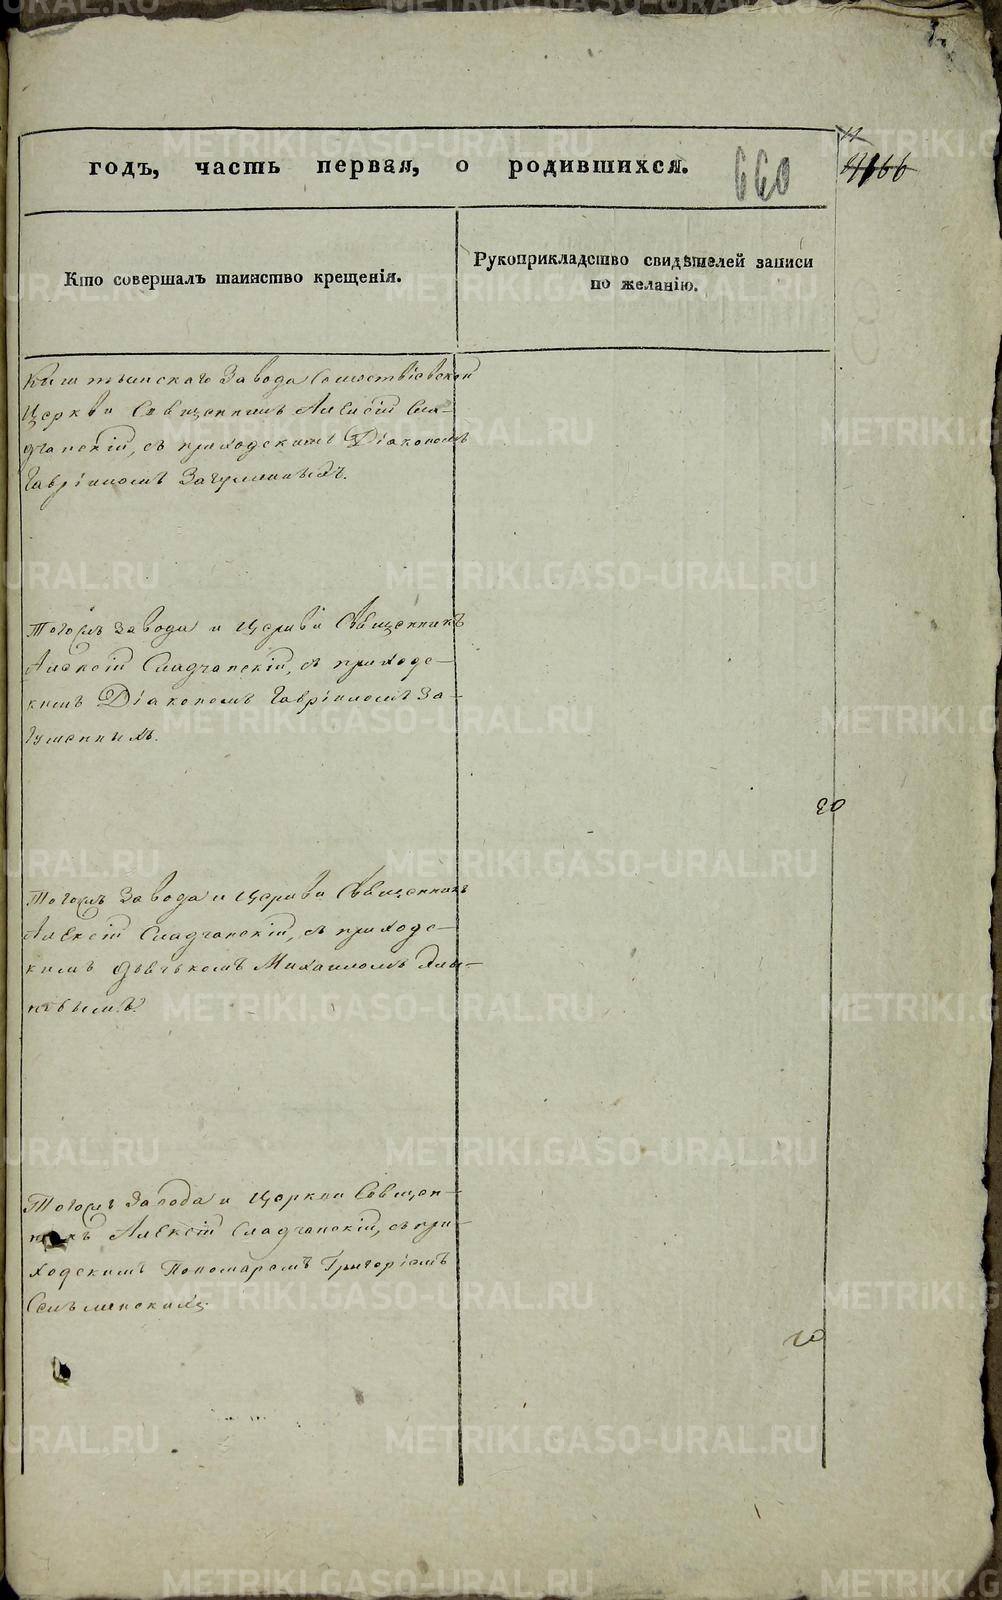 годъ, часть первая, о родившихся.
660
Кто совершалъ таинство крещенія.
Рукоприкладство свидѣтелей записи
по желанію.
Киштымскаго Завода Сошествіевской
Церкви Священникъ Алексій Сла-
дчанскій, съ приходскимъ Діакономъ
Гавріиломъ Загуменныхъ.
Тогожъ Завода и Церкви Священникъ
Алексій Сладчанскій, съ приходс-
кимъ Діакономъ Гавріиломъ За-
гуменныхъ.
20
Тогожъ Завода и Церкви Священникъ
Алексій Сладчанскій, съ приходс-
кимъ Дьячкомъ Михаиломъ
Тогожъ Завода и Церкви Священ-
никъ Алексій Сладчанскій, съ при-
ходскимъ Пономаремъ Григоріемъ
METRIKI.GASO-URAL.RU